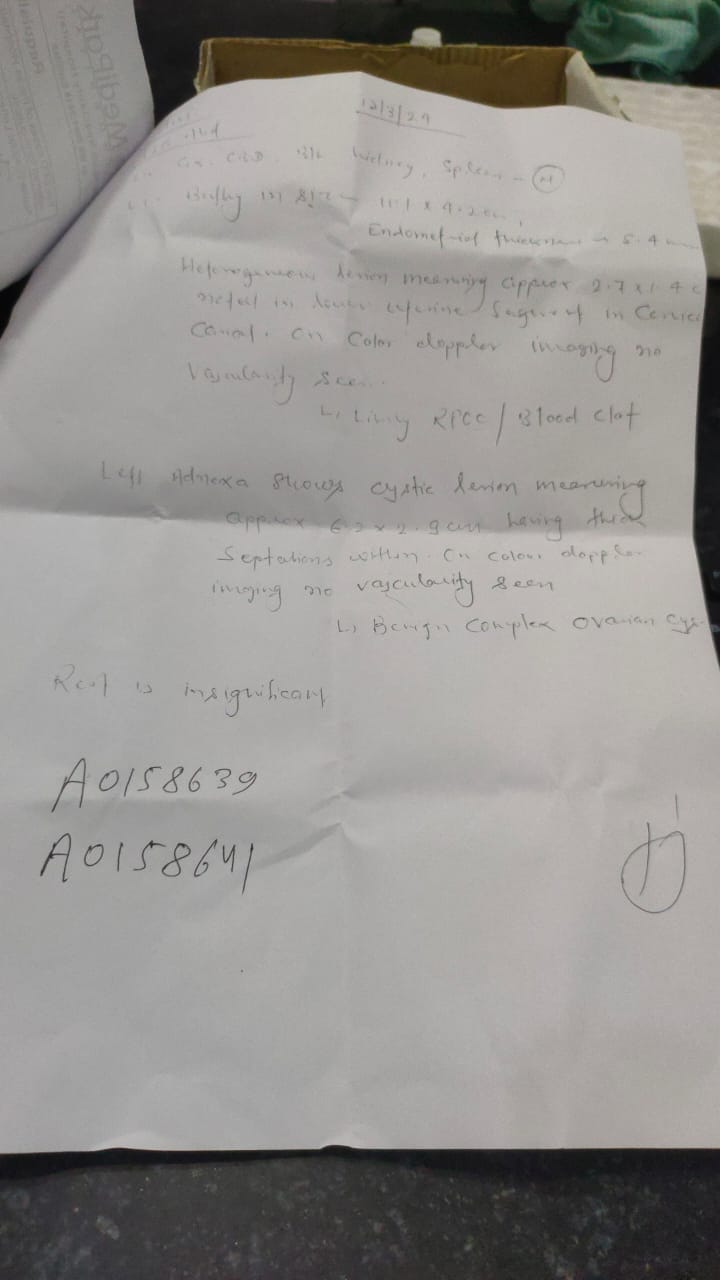 12/3/24
GB. CBD. B/L kidney, Spleen - (N)
Bulky in size - 11.1 x 4.2 cm,
Endometrial thickness - 5.4
Heterogeneous lesion measuring approx 2.7 x 1.4 c
noted in lower uterine Segment in
Canal. On Color doppler imaging no
Vascularity seen.
RPOC / Blood clot
Left Adnexa Shows cystic lesion measuring
approx 6.2 x 2.9 cm having thick
Septations within. On colour doppler
imaging no vascularity seen
Benign Complex ovarian Cys
Rest is insignificant
A0158639
A0158641
Medipark